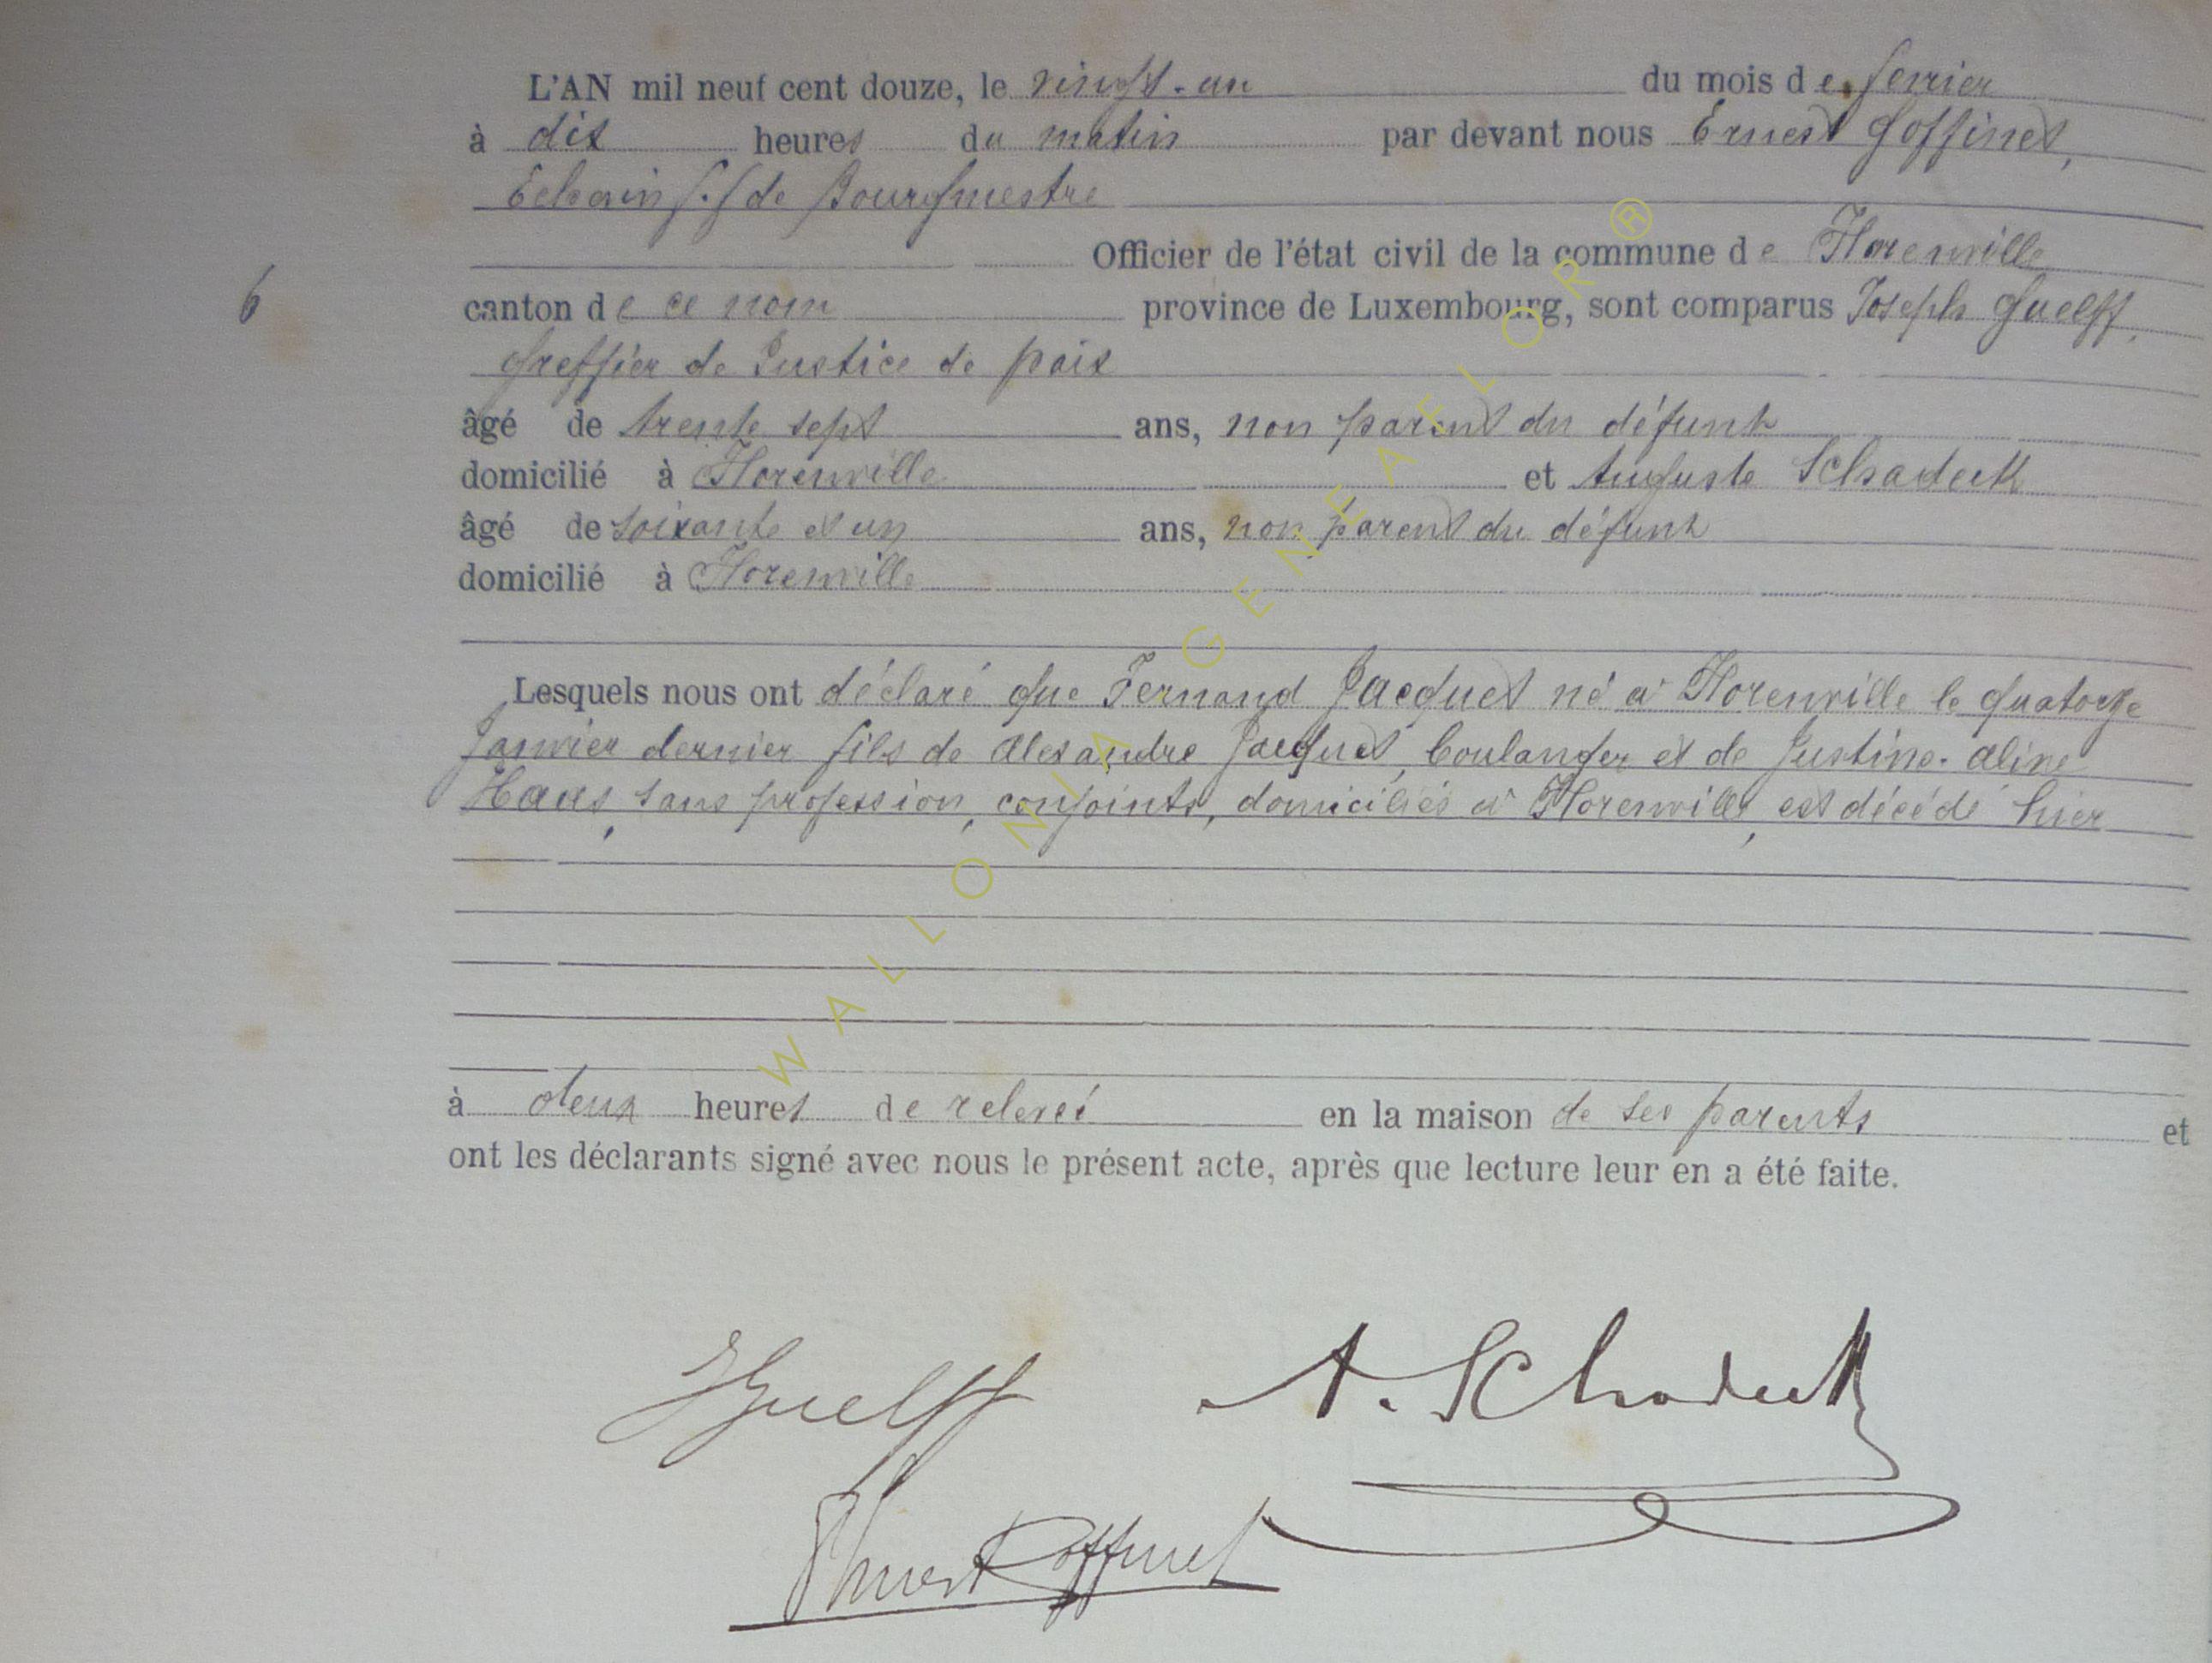 L'AN mil neuf cent douze, le vingt-un du mois de fevrier
à dix heures du matin par devant nous Ernest Goffinet,
Echevin f.f de Bourgmestre
Officier de l'état civil de la commune de Florenville
6 canton de ce nom province de Luxembourg, sont comparus Joseph Guelff,
Greffier de Justice de paix
âgé de trente sept ans, non parent du défunt
domicilié à Florenville et Auguste Schadeck
âgé de soixante et un ans, non parent du défunt
domicilié à Florenville
Lesquels nous ont déclaré que Fernand Jacquet né à Florenville le quatorze
Janvier dernier fils de Alexandre Jacquet, boulanger et de Justine-Aline
Haas, sans profession, conjoints, domiciliés à Florenville, est décédé hier
à deux heures de relevée en la maison de ses parents et
ont les déclarants signé avec nous le présent acte, après que lecture leur en a été faite.
JGuelff A. Schadeck
Ernest Goffinet
WALLONIA GENEALOR ®